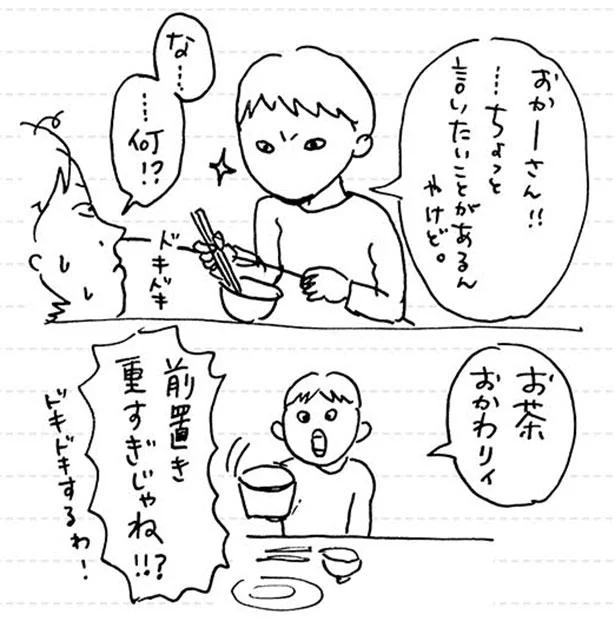 おかーさん!!
…ちょっと
言いたいことがあるん
やけど。
な……
……何!?
ドキドキ
お茶
おかわりィ
前置き
重すぎじゃね!!?
ドキドキするわ!